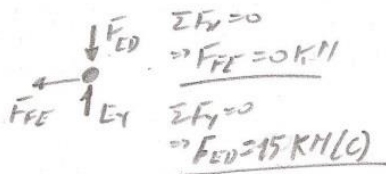 F_ED
F_FE
E_Y
ΣF_x = 0
⇒ F_FE = 0 KN
ΣF_y = 0
⇒ F_ED = 15 KN (C)